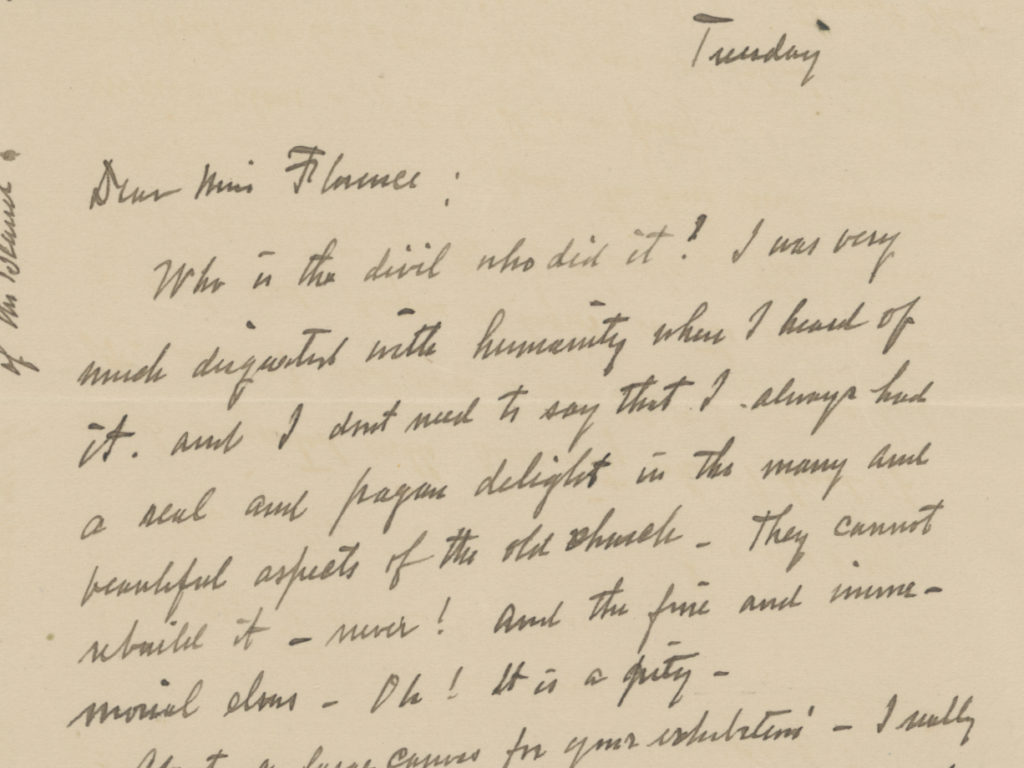 Tuesday
Dear Miss Florence :
Who is the divil who did it! I was very
much disgusted with humanity when I heard of
it. and I don't need to say that I always had
a real and pagan delight in the many and
beautiful aspects of the old church - They cannot
rebuild it - never! And the fine and imme-
morial elms - Oh! It is a pity -
About a large canvas for your exhibition - I really
of